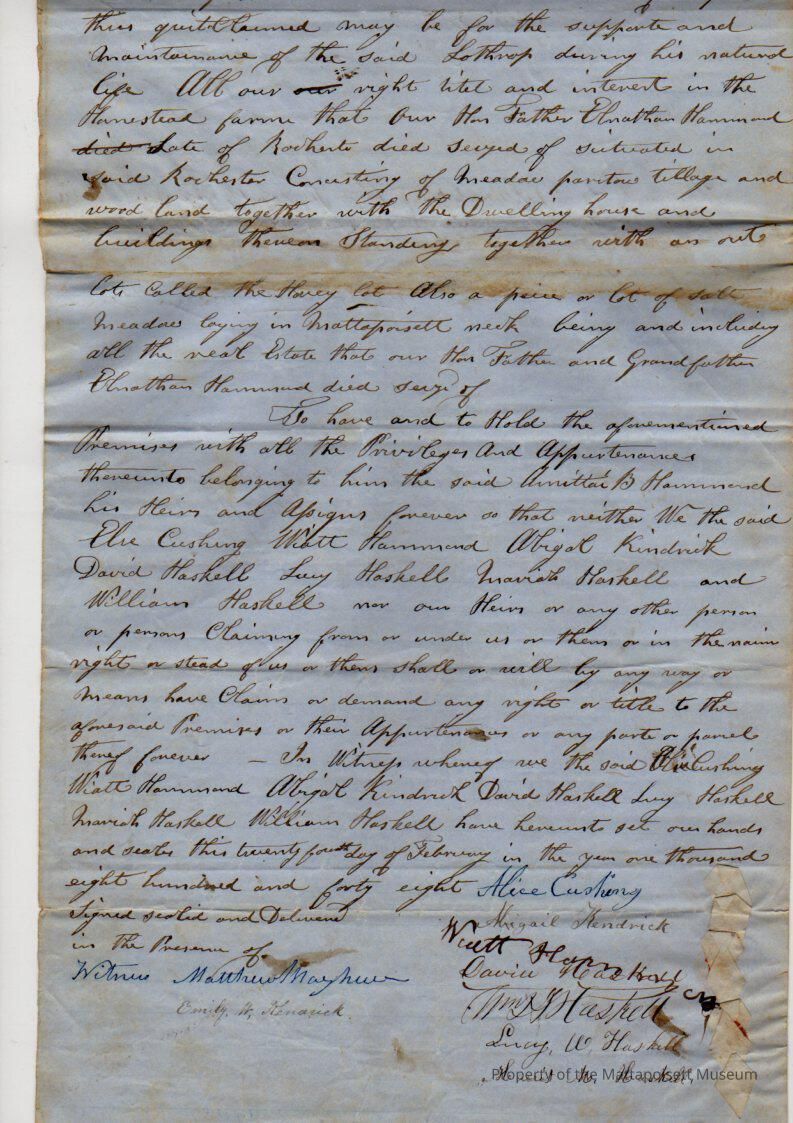 this quitClaimed may be for the supporte and
Maintainance of the said Lothrop during his natural
life All our our right titel and interest in the
Homestead farme that our Hon Father Elnathan Hammond
died Late of Rochester died seyzed of situated in
said Rochester Consisting of Meadow parstow tillage and
wood land together with the Dwelling house and
buildings thereon Standing together with an out
lots called the Hovey lot Also a peice or lot of salt
Meadow laying in Mattapoisett neck being and including
all the real Estate that our Hon Father and Grandfather
Elnathan Hammond died seyzd of
To have and to Hold the aforementioned
Premises with all the Privileges And Appurtenances
thereunto belonging to him the said Amittai B Hammond
his Heirs and Assigns forever so that neither We the said
Elce Cushing Wiatt Hammond Abigal Kindrick
David Haskell Lucy Haskell Mariah Haskell and
William Haskell nor our Heirs or any other person
or persons Claiming from or under us or them or in the naim
right or stead of us or them shall or will by any way or
means have Claim or demand any right or title to the
aforesaid Premises or their Appurtenances or any part or parcel
thereof forever — In Witness whereof we the said Cushing
Wiatt Hammond Abigal Kindrick David Haskell Lucy Haskell
Mariah Haskell William Haskell have hereunto set our hands
and seales this twenty fourth day of February in the year one thousand
eight hundred and forty eight Alice Cushing
Signed sealid and Delivered Abigail Kendrick
in the Presence of Wiatt Hammond
David Haskell
Witness Matthew Mayhew
Wm Haskell
Emily W. Kendrick.
Lucy, W, Haskell
Property of the Mattapoisett Museum